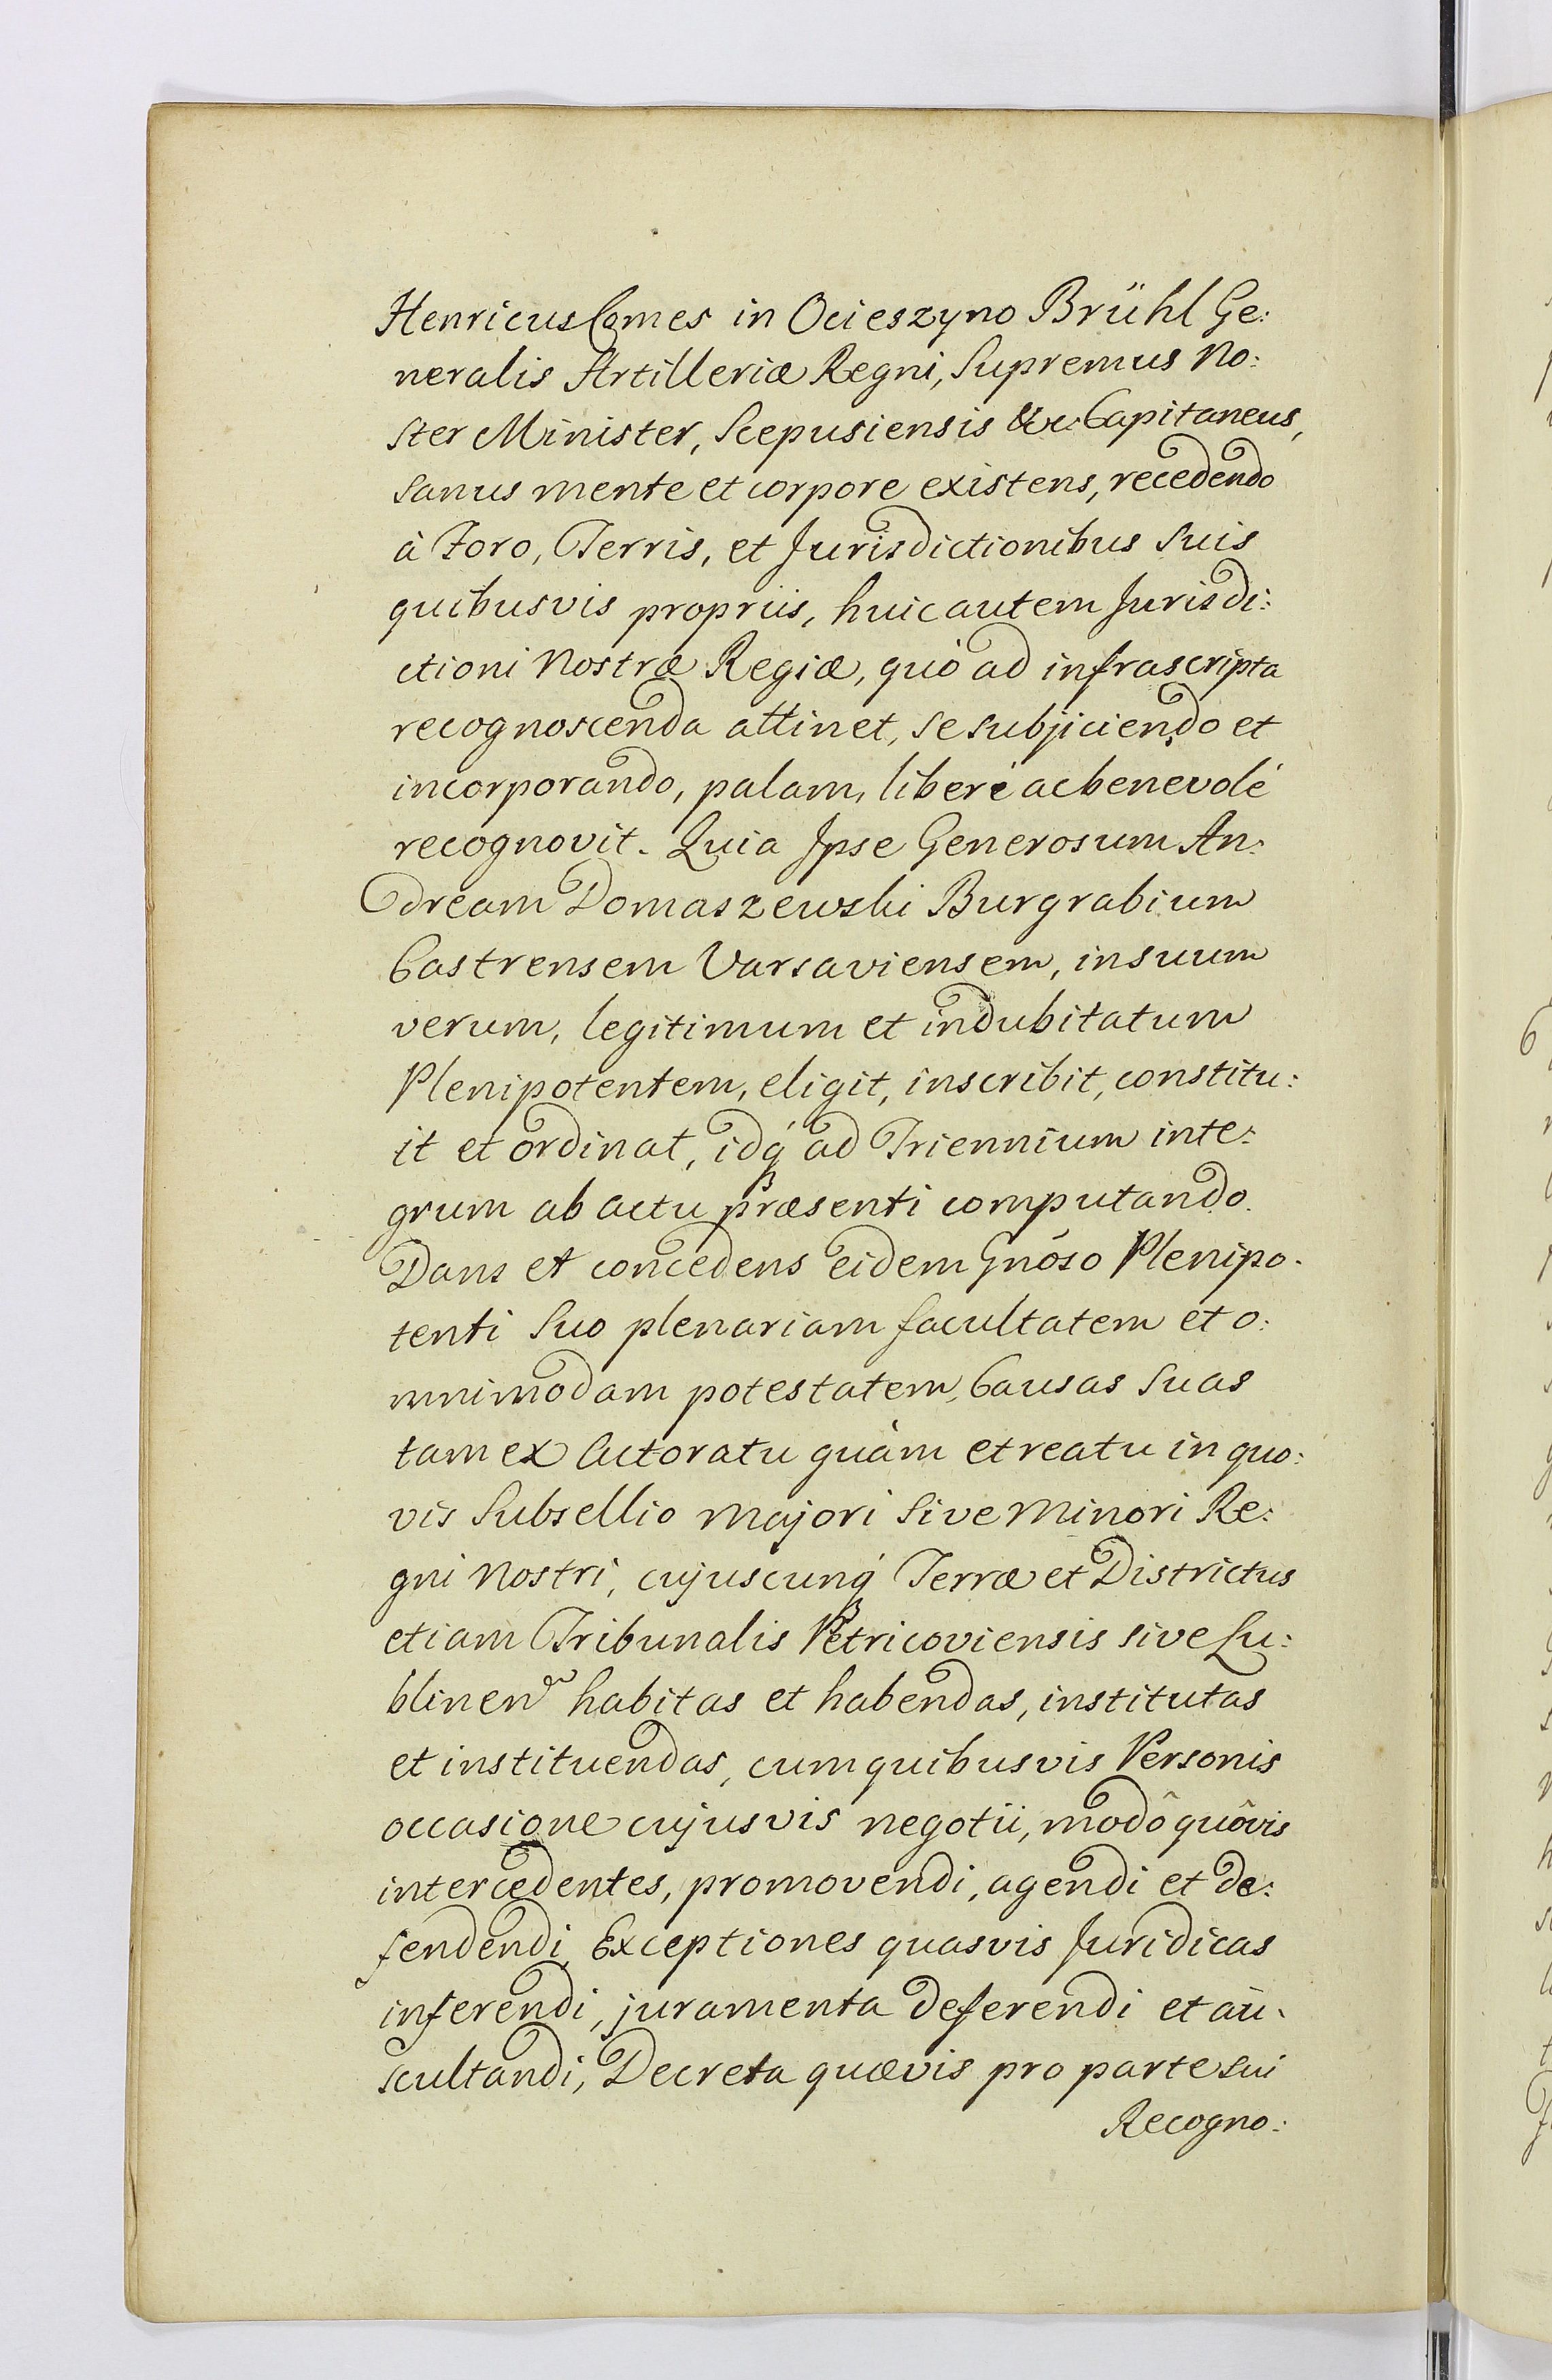 Henricus Comes in Ocieszyno Brühl Ge:
neralis Artilleriæ Regni, Supremus No:
ster Minister, Scepusiensis &c. Capitaneus,
sanus mente et corpore existens, recedendo
à Foro, Terris, et Jurisdictionibus suis
quibusvis propriis, huic autem Jurisdi:
ctioni Nostræ Regiæ, quò ad infrascripta
recognoscenda attinet, se subjiciendo et
incorporando, palam, liberè ac benevolè
recognovit. Quia Ipse Generosum An:
dream Domaszewski Burgrabium
Castrensem Varsaviensem, in suum
verum, legitimum et indubitatum
Plenipotentem, eligit, inscribit, constitu:
it et ordinat, idq́ ad Triennium inte:
grum ab actu præsenti computando.
Dans et concedens eidem Gnóso Plenipo:
tenti Suo plenariam facultatem et o:
mnimodam potestatem, Causas suas
tam ex Actoratu quàm et reatu in quo:
vis Subsellio majori sive minori Re:
gni Nostri, cujuscunq́ Terræ et Districtus
etiam Tribunalis Petricoviensis sive Lu:
blinen̄ habitas et habendas, institutas
et instituendas, cum quibusvis Personis
occasione cujusvis negotii, modô quôvis
intercedentes, promovendi, agendi et de:
fendendi, Exceptiones quasvis Juridicas
inferendi, juramenta deferendi et au:
scultandi, Decreta quævis pro parte sui
Recogno: